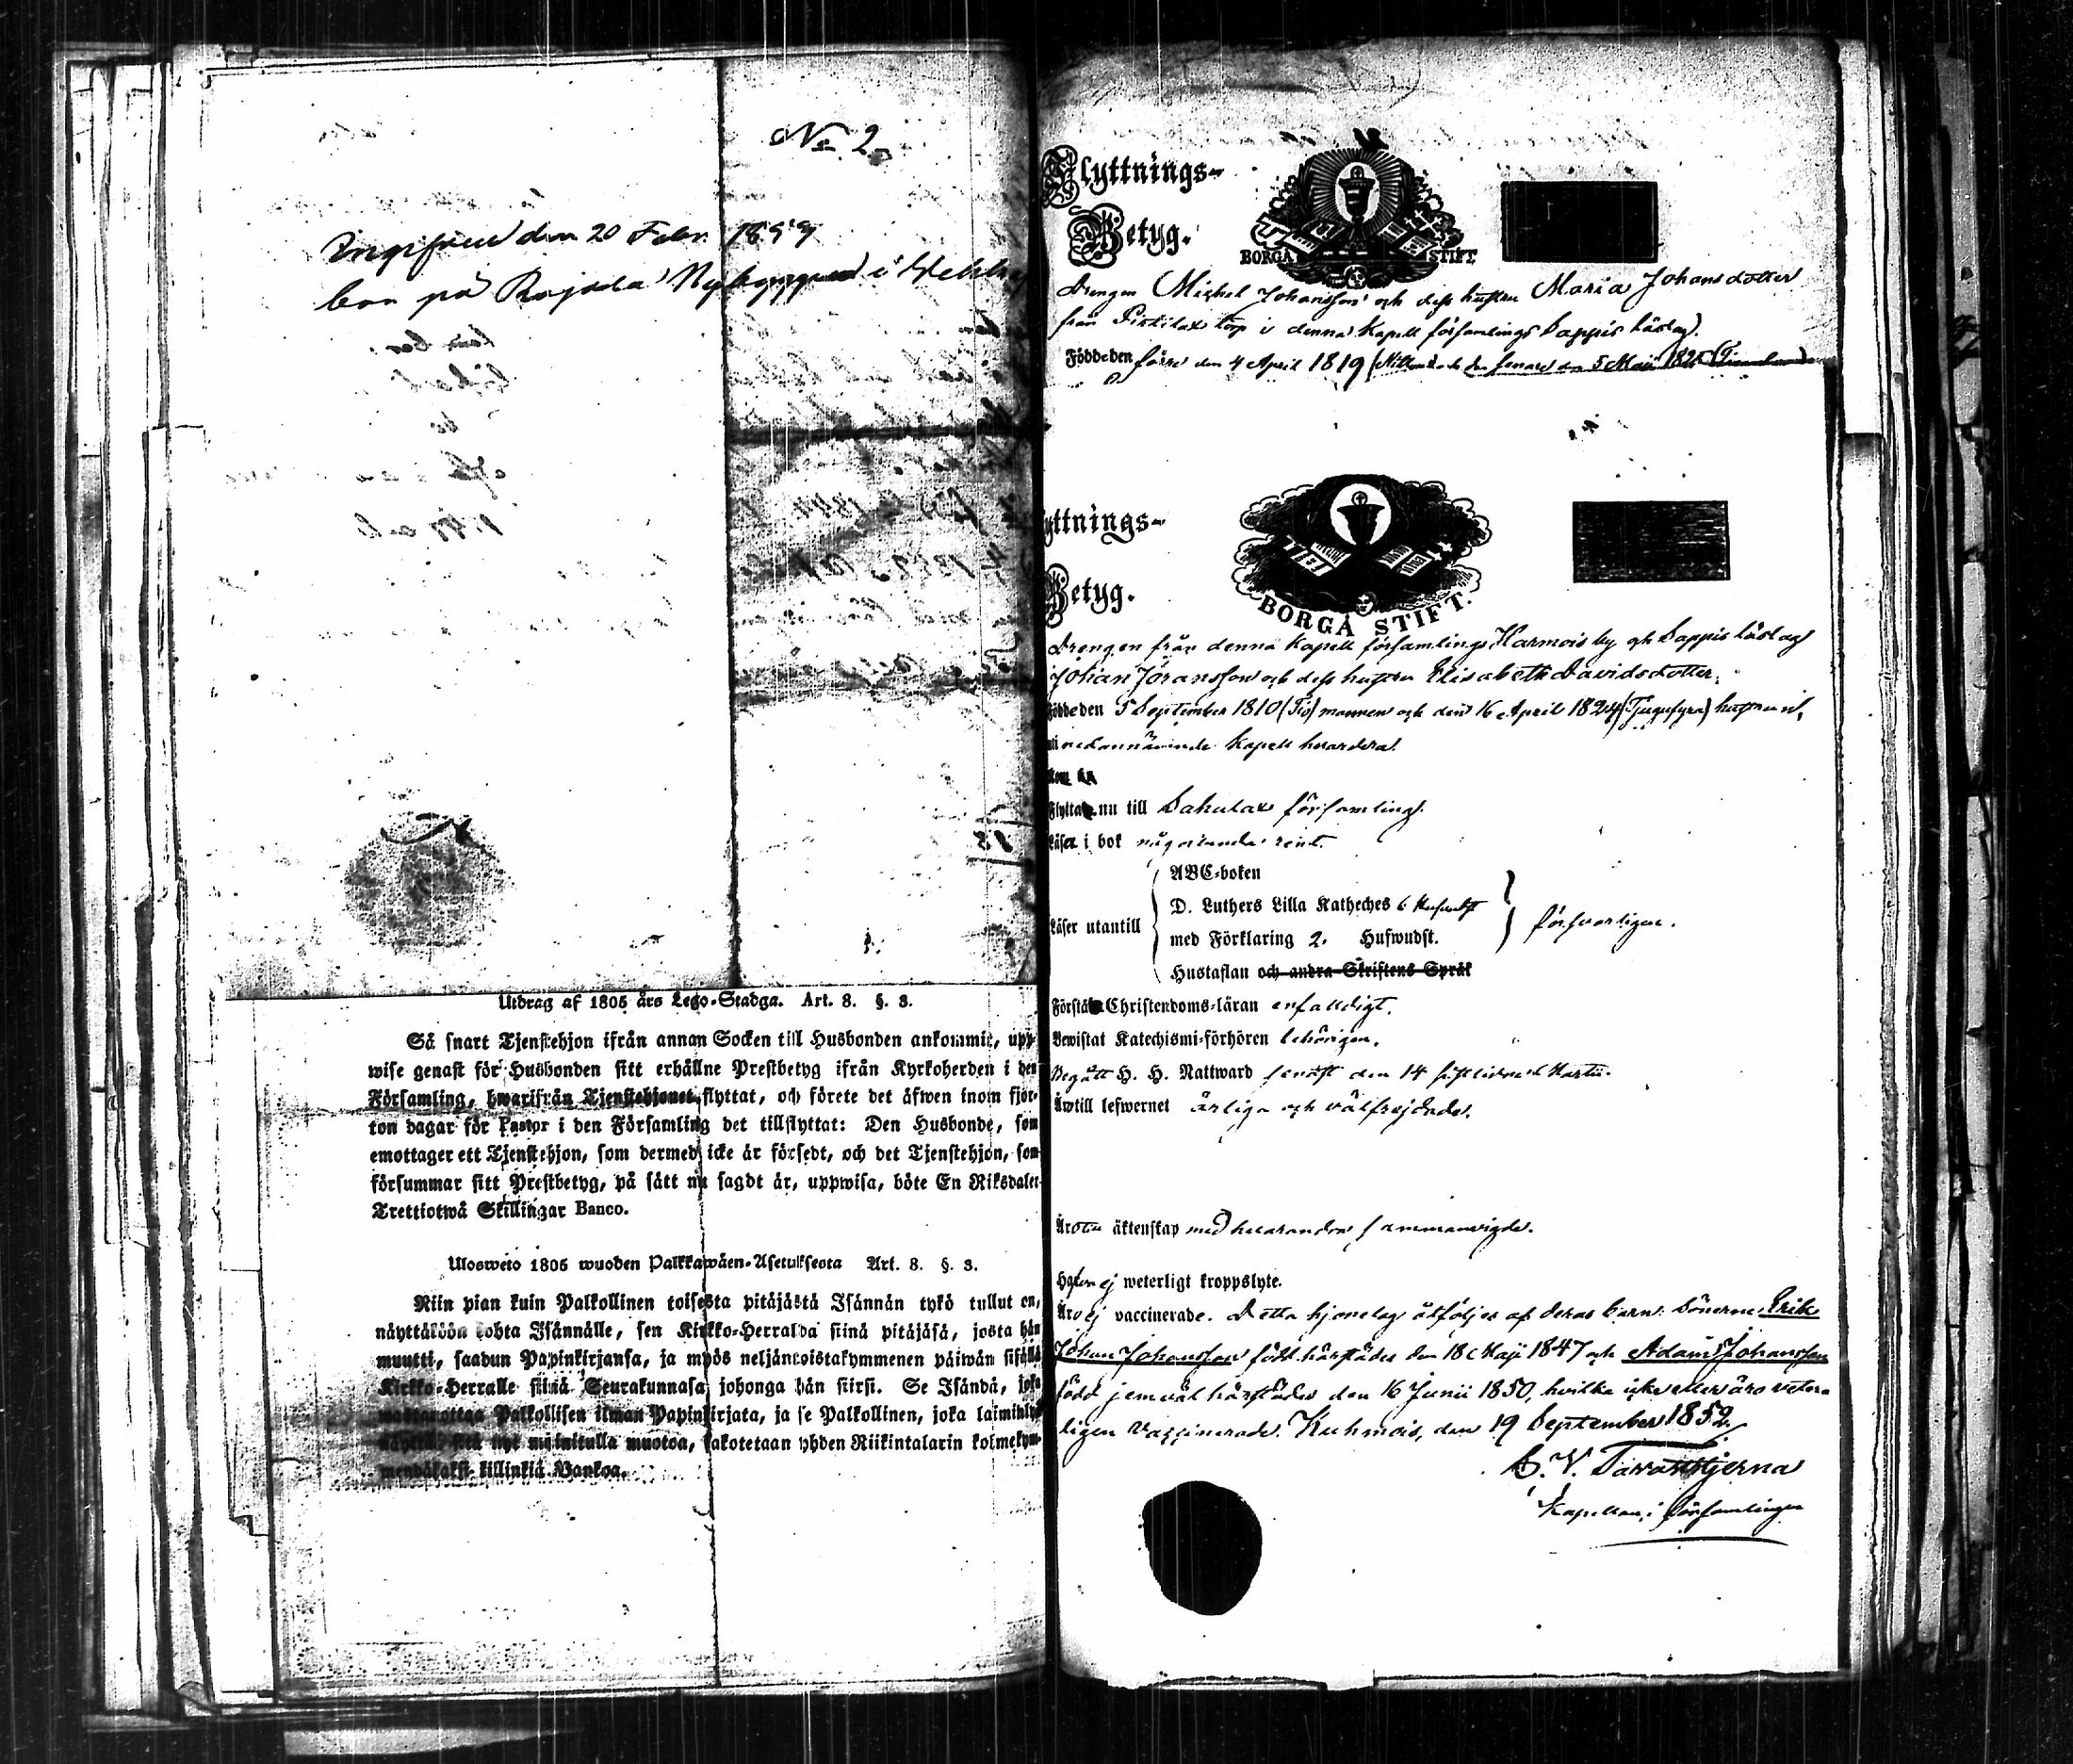 No 2.
den 20 Febr. 1859
bor på i
Utdrag af 1805 års Lego-Stadga. Art. 8. §. 3.
Så snart Tjenstehjon ifrån annan Socken till Husbonden ankommit, upp-
wise genast för Husbonden sitt erhållne Prestbetyg ifrån Kyrkoherden i den
Församling, hwarifrån Tjenstehjonet flyttat, och förete det äfwen inom fjor-
ton dagar för Pastor i den Församling det tillflyttat: Den Husbonde, som
emottager ett Tjenstehjon, som dermed icke är försedt, och det Tjenstehjon, som
försummar sitt Prestbetyg, på sätt nu sagdt är, uppwisa, böte En Riksdaler
Trettiotwå Skillingar Banco.
Ulosweto 1805 wuoden Palkkawäen-Asetuksesta Art. 8. §. 3.
Niin pian kuin Palkollinen toisesta pitäjästä Isännän tykö tullut on,
näyttäköön kohta Isännälle, sen Kirkko-Herralda siinä pitäjäsä, josta hän
muutti, saadun Papinkirjansa, ja myös neljäntoistakymmenen päiwän sisällä
Kirkko-Herralle siinä Seurakunnasa, johonga hän siirsi. Se Isändä, joka
wastanottaa Palkollisen ilman Papinkirjata, ja se Palkollinen, joka laiminlyö
näyttää sitä nyt mainitulla muotoa, sakotetaan yhden Riikintalarin kolmekym-
mendäkaksi killinkiä Bankoa.
Flyttnings-
Betyg.
BORGÅ STIFT.
Drengen Mickel Johansson och dess hustru Maria Johansdotter
från torp i denna Kapell församlings Sappis läslag.
Födde den förre den 4 April 1819 och den senare den 5 Maii
yttnings-
Betyg.
BORGÅ STIFT.
Drengen från denna Kapell församlings Harmois by och Sappis läslag
Johan Jöransson och dess hustru Elisabeth Davidsdotter.
Födde den 5 September 1810 (Tio) mannen och den 16 April 1824 (Tjugufyra) hustrun,
i nedannämnde Kapell hvardera.
Flytta nu till Sahalax församling.
Läser i bok någorlunda rent.
Läser utantill
ABC-boken
D. Luthers Lilla Katheches 6 Hufwudst
med Förklaring 2. Hufwudst.
Hustaflan och andra Skriftens Språk
försvarligen.
Förstå Christendoms-läran enfaldigt.
Bewistat Katechismi-förhören behörigen.
Begått H. H. Nattward senast den 14 sistlidne Martii.
Äro till lefwernet ärliga och välfrejdade.
Äro i äktenskap med hvarandra sammanvigde.
Hafva ej weterligt kroppslyte.
Äro ej vaccinerade. Detta hjonelag åtföljes af deras barn: Sönerne Erik
Johan Johansson född härstädes den 18 Maji 1847 och Adam Johansson
född jemväl härstädes den 16 Junii 1850, hvilka icke eller äro veter-
ligen vaccinerade. Kuhmois, den 19 September 1852.
C. V. Tavaststjerna
Kapellan i Församlingen